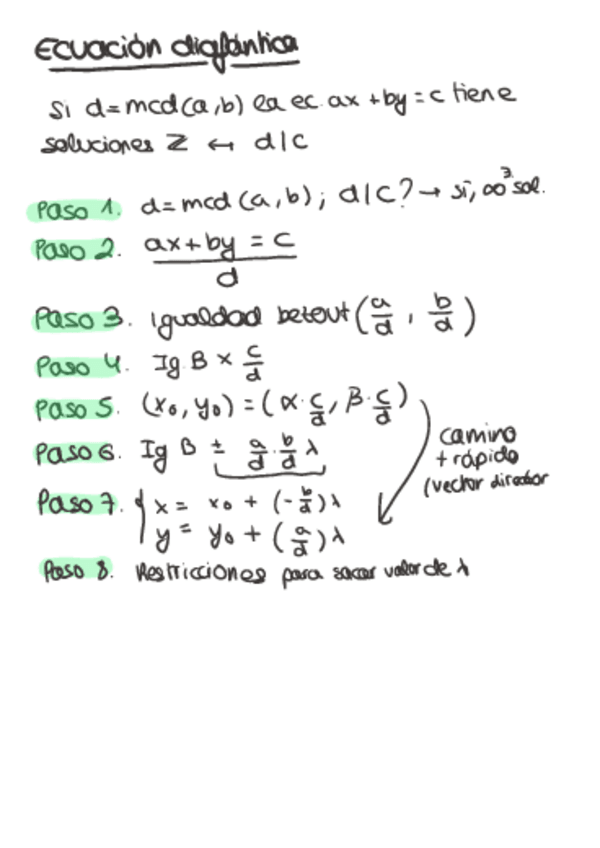 Ecuación diofántica
Si d = mcd(a,b) la ec. ax + by = c tiene
soluciones Z ↔ d|c
Paso 1. d = mcd (a,b); d|c? → sí, ∞ sol.
Paso 2. (ax + by = c)/d
Paso 3. Igualdad betout (a/d, b/d)
Paso 4. Ig B × c/d
Paso 5. (x₀, y₀) = (α·c/d, β·c/d)
camino
+ rápido
(vector director
Paso 6. Ig B ± a/d · b/d λ
Paso 7. { x = x₀ + (-b/d)λ
y = y₀ + (a/d)λ
Paso 8. Restricciones para sacar valor de λ